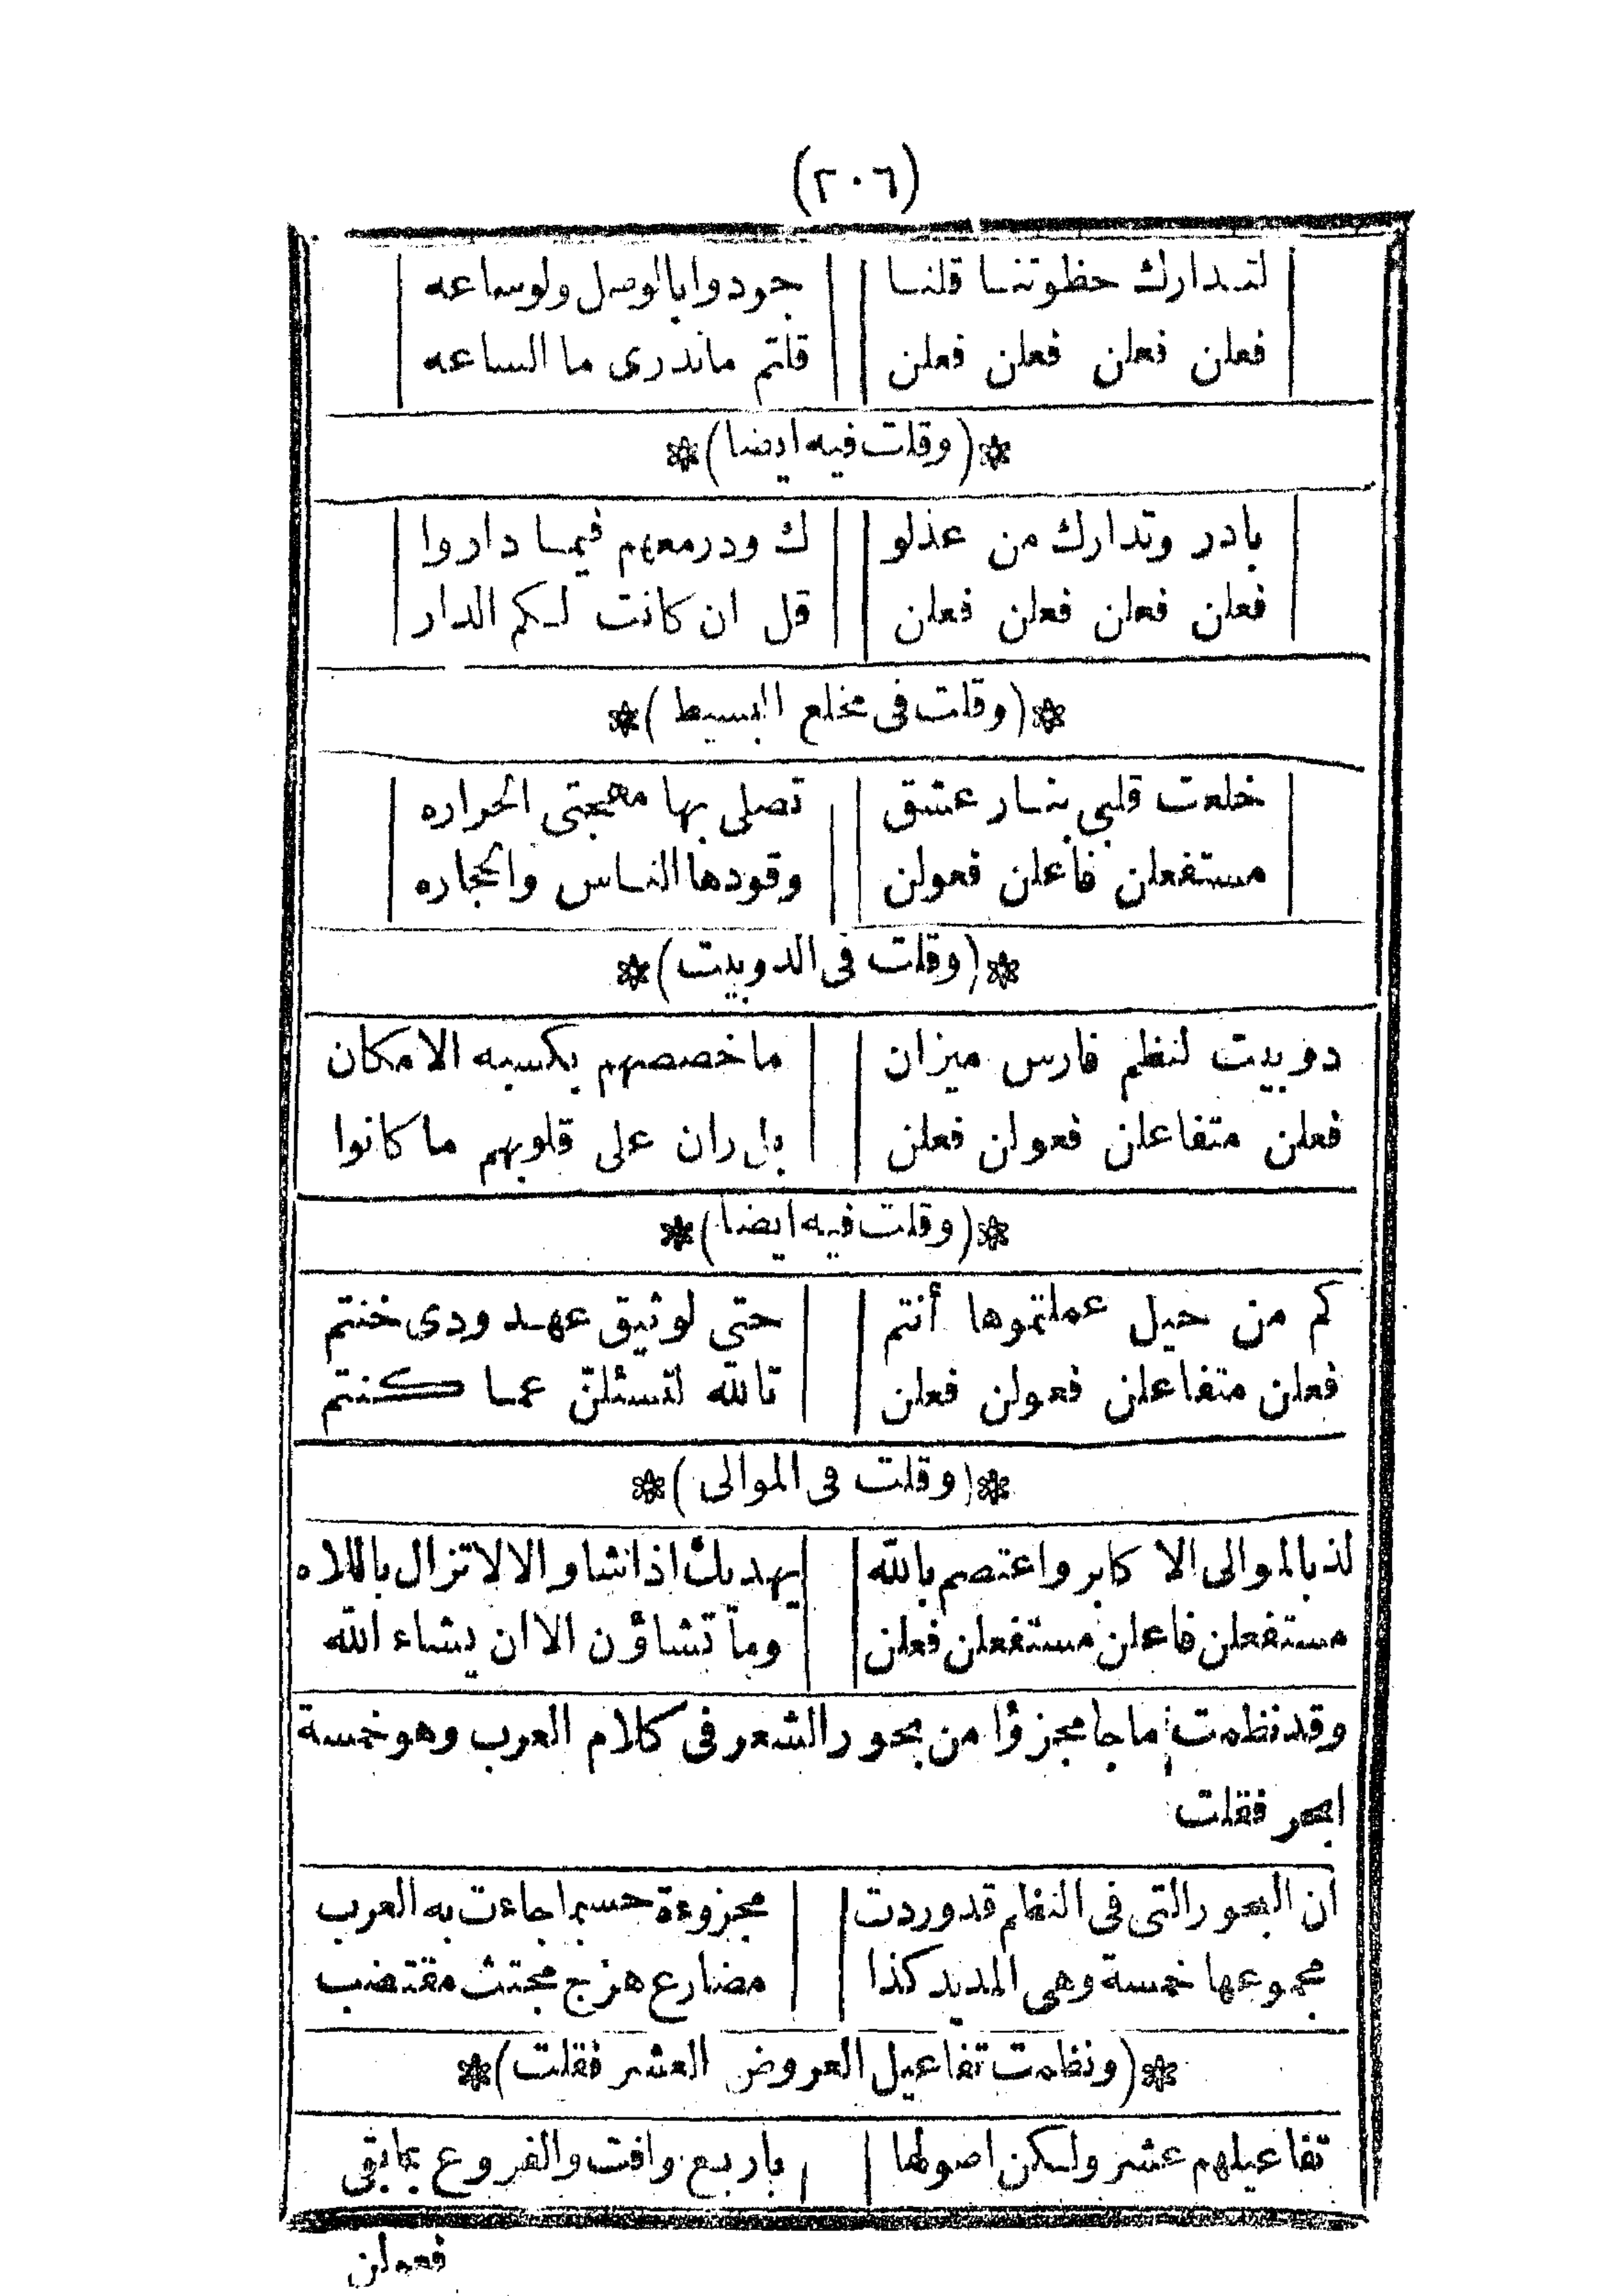 (٢٠٦)
لتدارك حظوتنا قلنا جودوا بالوصل ولو ساعه
فعلن فعلن فعلن فعلن قلتم ماندرى ما الساعه
(وقلت فيه ايضا)
بادر وتدارك من عذلو ك ودر معهم فيما داروا
فعلن فعلن فعلن فعلن قل ان كانت لكم الدار
(وقلت فى مخلع البسيط)
خلعت قلبي بنار عشق تصلى بها مهجتى الحراره
مستفعلن فاعلن فعولن وقودها الناس والحجاره
(وقلت فى الدوبيت)
دوبيت لنظم فارس ميزان ماخصصهم بكسبه الامكان
فعلن متفاعلن فعولن فعلن بل ران على قلوبهم ما كانوا
(وقلت فيه ايضا)
كم من حيل عملتموها أنتم حتى لوثيق عهد ودى خنتم
فعلن متفاعلن فعولن فعلن تالله لتسئلنّ عما كنتم
(وقلت فى الموالى)
لذ بالموالى الاكابر واعتصم بالله يهديك اذا نشا والا لاتزال باللاه
مستفعلن فاعلن مستفعلن فعلن وما تشاؤن الا ان يشاء الله
وقد نظمت ما جا مجزؤا من بحور الشعر فى كلام العرب وهو خمسة
ابحر فقلت
ان البحور التى فى النظم قد وردت مجزوءة حسبما جاءت به العرب
مجموعها خمسة وهى المديد كذا مضارع هزج مجتث مقتضب
(ونظمت تفاعيل العروض العشر فقلت)
تفاعيلهم عشر ولكن اصولها باربع وافت والفروع بمابقى
فعولن